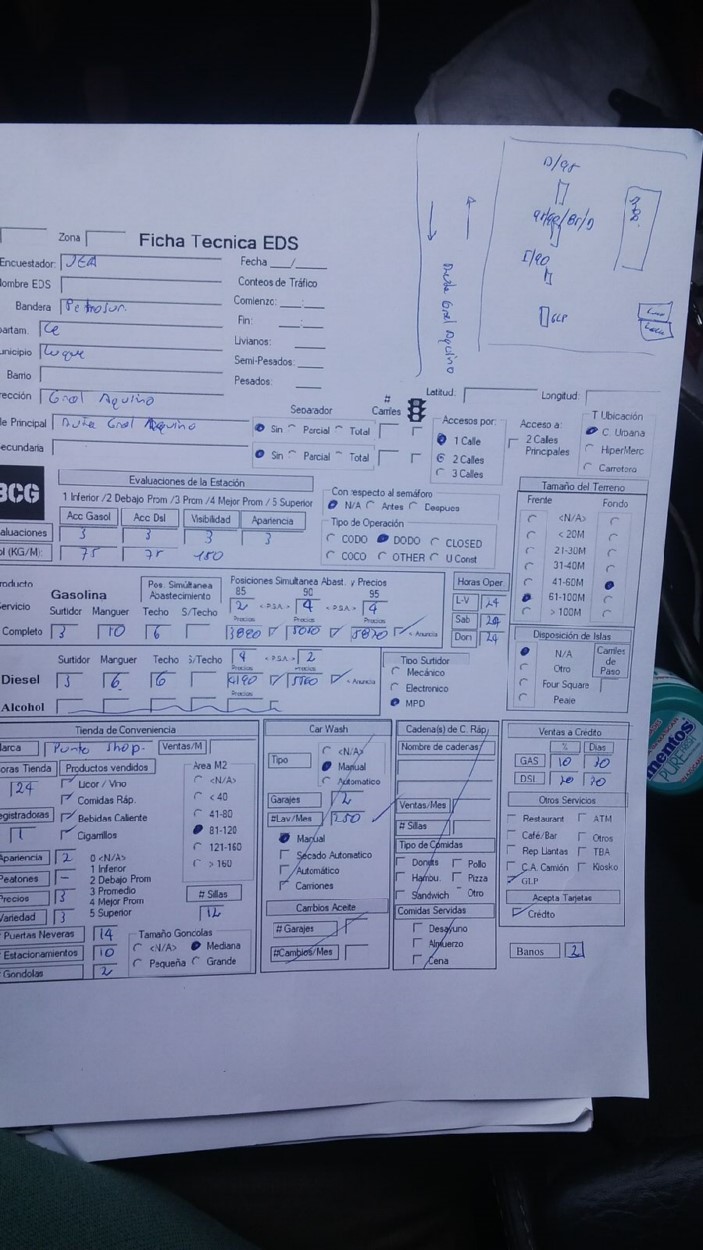 D/95
Ruta Gral Aquino
I/90
GLP
Zona
Ficha Tecnica EDS
Encuestador: JEA
Fecha __/__
ombre EDS
Conteos de Tráfico
Bandera Petrosur.
Comienzo: __:__
Fin: __:__
partam. Ce
Livianos:
unicipio Luque
Semi-Pesados:
Barrio
Pesados:
rección Gral Aquino
Latitud:
Longitud:
le Principal Ruta Gral Aquino
Separador
# Carriles
Sin Parcial Total
ecundaria
Sin Parcial Total
Accesos por:
1 Calle
2 Calles
3 Calles
Acceso a:
2 Calles Principales
T Ubicación
C. Urbana
HiperMerc
Carretera
BCG
Evaluaciones de la Estación
1 Inferior /2 Debajo Prom /3 Prom /4 Mejor Prom / 5 Superior
Acc Gasol Acc Dsl Visibilidad Apariencia
aluaciones 3 3 3 3
ol (KG/M): 75 75 150
Con respecto al semáforo
N/A Antes Despues
Tipo de Operación
CODO DODO CLOSED
COCO OTHER U Const
Tamaño del Terreno
Frente Fondo
<N/A>
< 20M
21-30M
31-40M
41-60M
61-100M
> 100M
roducto
Servicio
Gasolina
Pos. Simúltanea Abastecimiento
Posiciones Simultanea Abast. y Precios
85 90 95
2 < P.S.A.> 4 < P.S.A.> 4
Surtidor Manguer Techo S/Techo
Precios Precios Precios
Completo 3 10 6 3890 5010 5870 < Anuncia
Horas Oper.
L-V 24
Sab 24
Dom 24
Surtidor Manguer Techo S/Techo
4 < P.S.A.> 2
Precios Precios
Diesel 3 6 6 4190 < Anuncia
Alcohol
Tipo Surtidor
Mecánico
Electronico
MPD
Disposición de Islas
N/A
Otro
Four Square
Peaje
Carriles de Paso
Tienda de Conveniencia
arca Punto Shop. Ventas/M
oras Tienda
24
Productos vendidos
Licor / Vino
Comidas Ráp.
Bebidas Caliente
Cigarrillos
egistradoras
1
Area M2
<N/A>
< 40
41-80
81-120
121-160
> 160
Apariencia 2
Peatones –
Precios 3
Variedad 3
0 <N/A>
1 Inferor
2 Debajo Prom
3 Promedio
4 Mejor Prom
5 Superior
# Sillas
12
# Puertas Neveras 14
# Estacionamientos 10
# Gondolas 2
Tamaño Goncolas
<N/A> Mediana
Pequeña Grande
Car Wash
Tipo
<N/A>
Manual
Automatico
Garajes 2
#Lav/Mes 250
Manual
Secado Automatico
Automático
Camiones
Cambios Aceite
# Garajes
#Cambios/Mes
Cadena(s) de C. Ráp.
Nombre de cadenas
Ventas/Mes
# Sillas
Tipo de Comidas
Donuts Pollo
Hambu. Pizza
Sandwich Otro
Comidas Servidas
Desayuno
Almuerzo
Cena
Ventas a Crédito
% Dias
GAS 10 30
DSl 20 30
Otros Servicios
Restaurant ATM
Café/Bar Otros
Rep Llantas TBA
C.A. Camión Kiosko
GLP
Acepta Tarjetas
Crédito
Banos 2
mentos
PURE FRESH